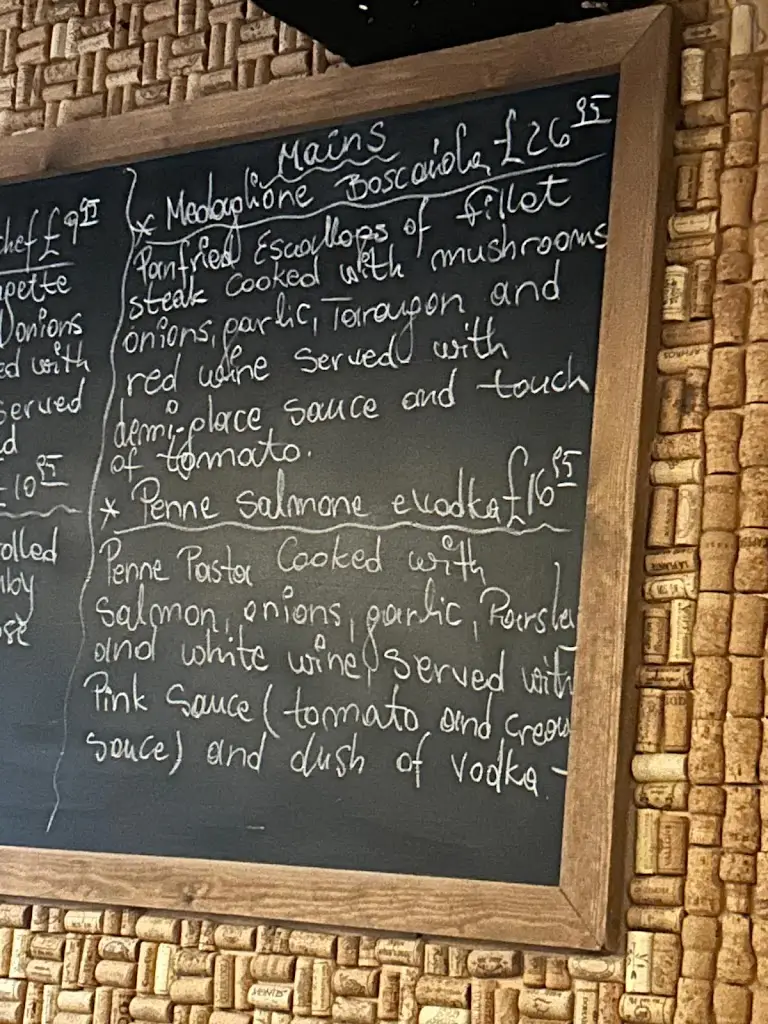 chef £9.95
pette
onions
ed with
served
d
£10.95
rolled
Mains
* Medaglione Boscaiola £26.95
Panfried Escallops of fillet
steak cooked with mushrooms
onions, garlic, Taragon and
red wine served with
demi-glace sauce and touch
of tomato.
* Penne Salmone e vodka £16.95
Penne Pasta Cooked with
Salmon, onions, garlic, Parsle
and white wine, served with
Pink Sauce (tomato and cream
sauce) and dush of vodka -